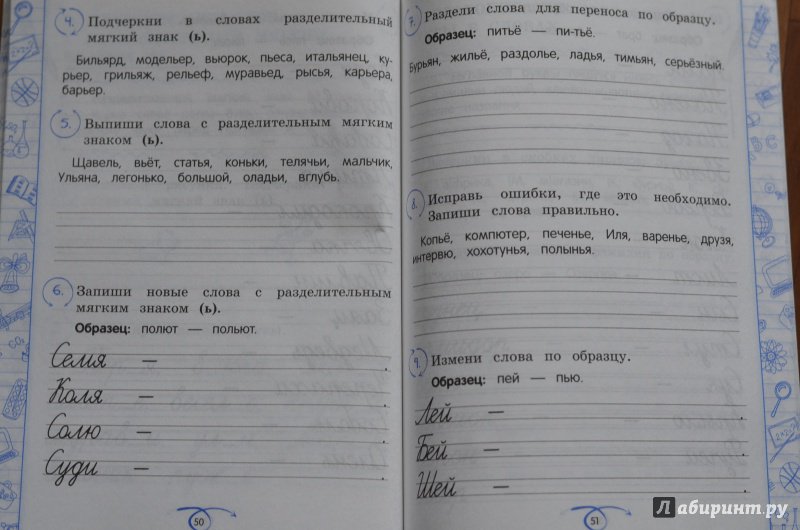 4. Подчеркни в словах разделительный
мягкий знак (ь).
Бильярд, модельер, вьюрок, пьеса, итальянец, ку-
рьер, грильяж, рельеф, муравьед, рысья, карьера,
барьер.
5. Выпиши слова с разделительным мягким
знаком (ь).
Щавель, вьёт, статья, коньки, телячьи, мальчик,
Ульяна, легонько, большой, оладьи, вглубь.
6. Запиши новые слова с разделительным
мягким знаком (ь).
Образец: полют — польют.
Семя —
Коля —
Солю —
Суди —
50
7. Раздели слова для переноса по образцу.
Образец: питьё — пи-тьё.
Бурьян, жильё, раздолье, ладья, тимьян, серьёзный.
8. Исправь ошибки, где это необходимо.
Запиши слова правильно.
Копьё, компютер, печенье, Иля, варенье, друзя,
интервю, хохотунья, полынья.
9. Измени слова по образцу.
Образец: пей — пью.
Лей —
Бей —
Шей —
51
Лабиринт.ру